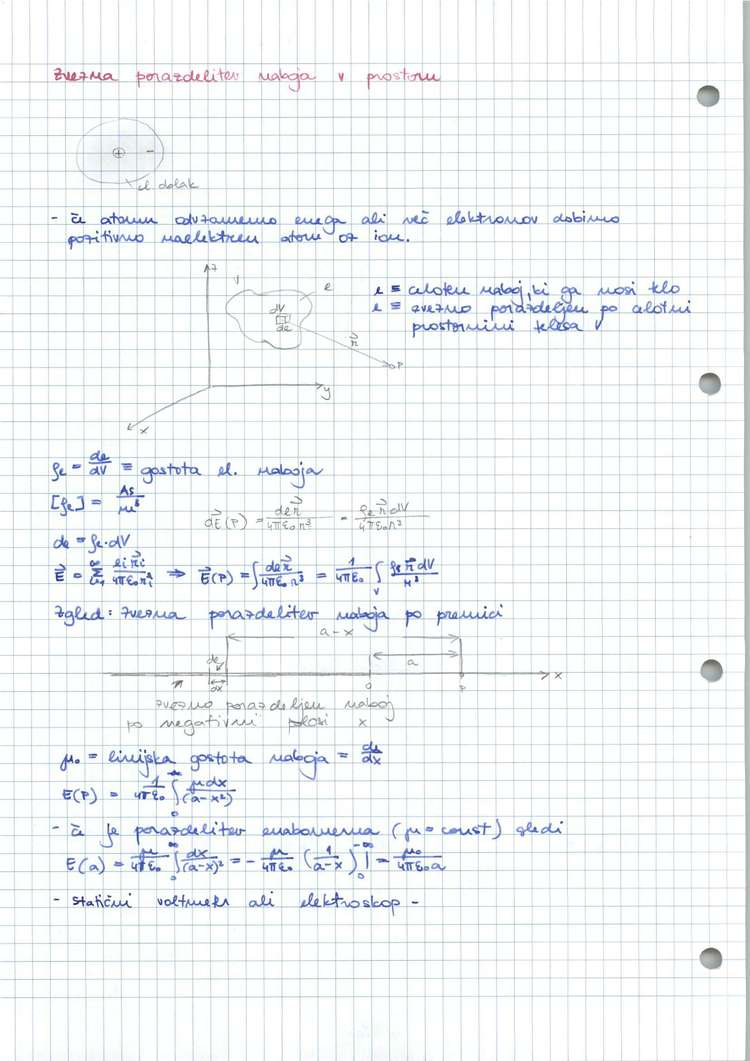 Zvezna porazdelitev naboja v prostoru
+ -
el. oblak
- če atomu odvzamemo enega ali več elektronov dobimo
pozitivno naelektren atom oz ion.
z
V e
dV
de
r⃗
P
y
x
e ≡ celoten naboj, ki ga nosi telo
e ≡ zvezno porazdeljen po celotni
prostornini telesa V
ρe = de/dV ≡ gostota el. naboja
[ρe] = As/m³
dE⃗(P) = de r⃗/4πε₀r³ = ρe r⃗ dV/4πε₀r³
de = ρe·dV
E⃗ = Σ ei r⃗i/4πε₀ri³ ⇒ E⃗(P) = ∫ de r⃗/4πε₀r³ = 1/4πε₀ ∫V ρe r⃗ dV/r³
Zgled: zvezna porazdelitev naboja po premici
a-x
de a
dx 0 P x
zvezno porazdeljen naboj
po negativni x
μ₀ = linijska gostota naboja = de/dx
E(P) = 1/4πε₀ ∫ μdx/(a-x²)
- če je porazdelitev enakomerna (μ = const) sledi
E(a) = μ/4πε₀ ∫ dx/(a-x)² = - μ/4πε₀ (1/a-x)|₀^-∞ = μ₀/4πε₀a
- statični voltmeter ali elektroskop -